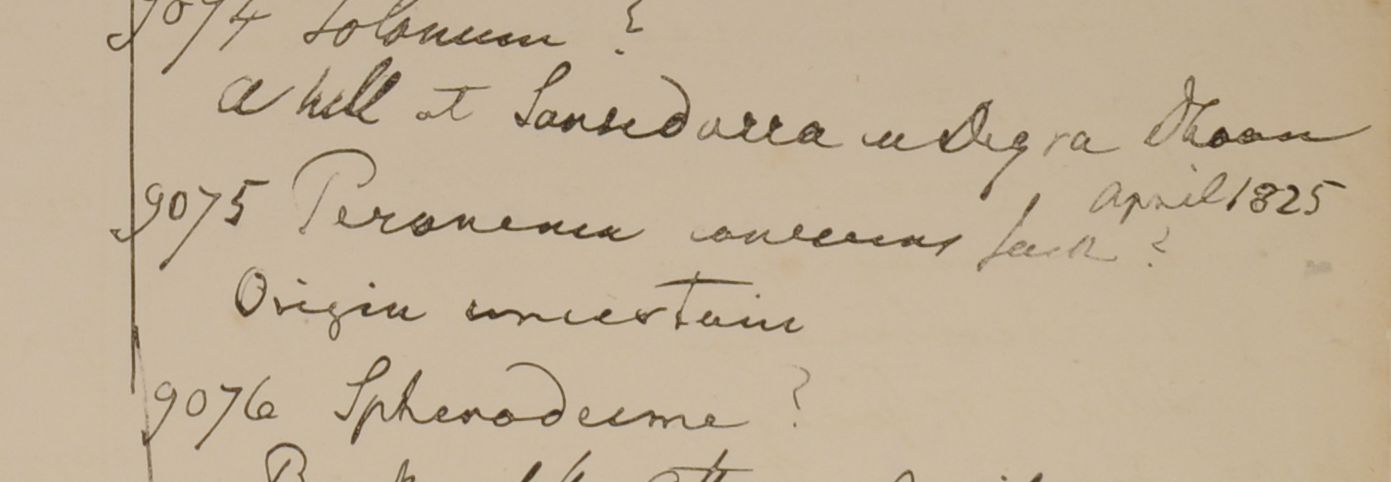 9074 Solanum ?
a hill at Sansedarra in Degra Dhoon
April 1825
9075 Peronema canescens Jack ?
Origin uncertain
9076 Sphenodesme ?